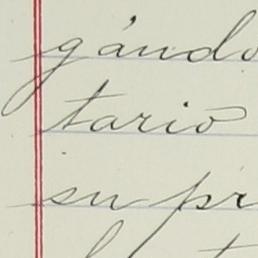 gándo
tario
su pr